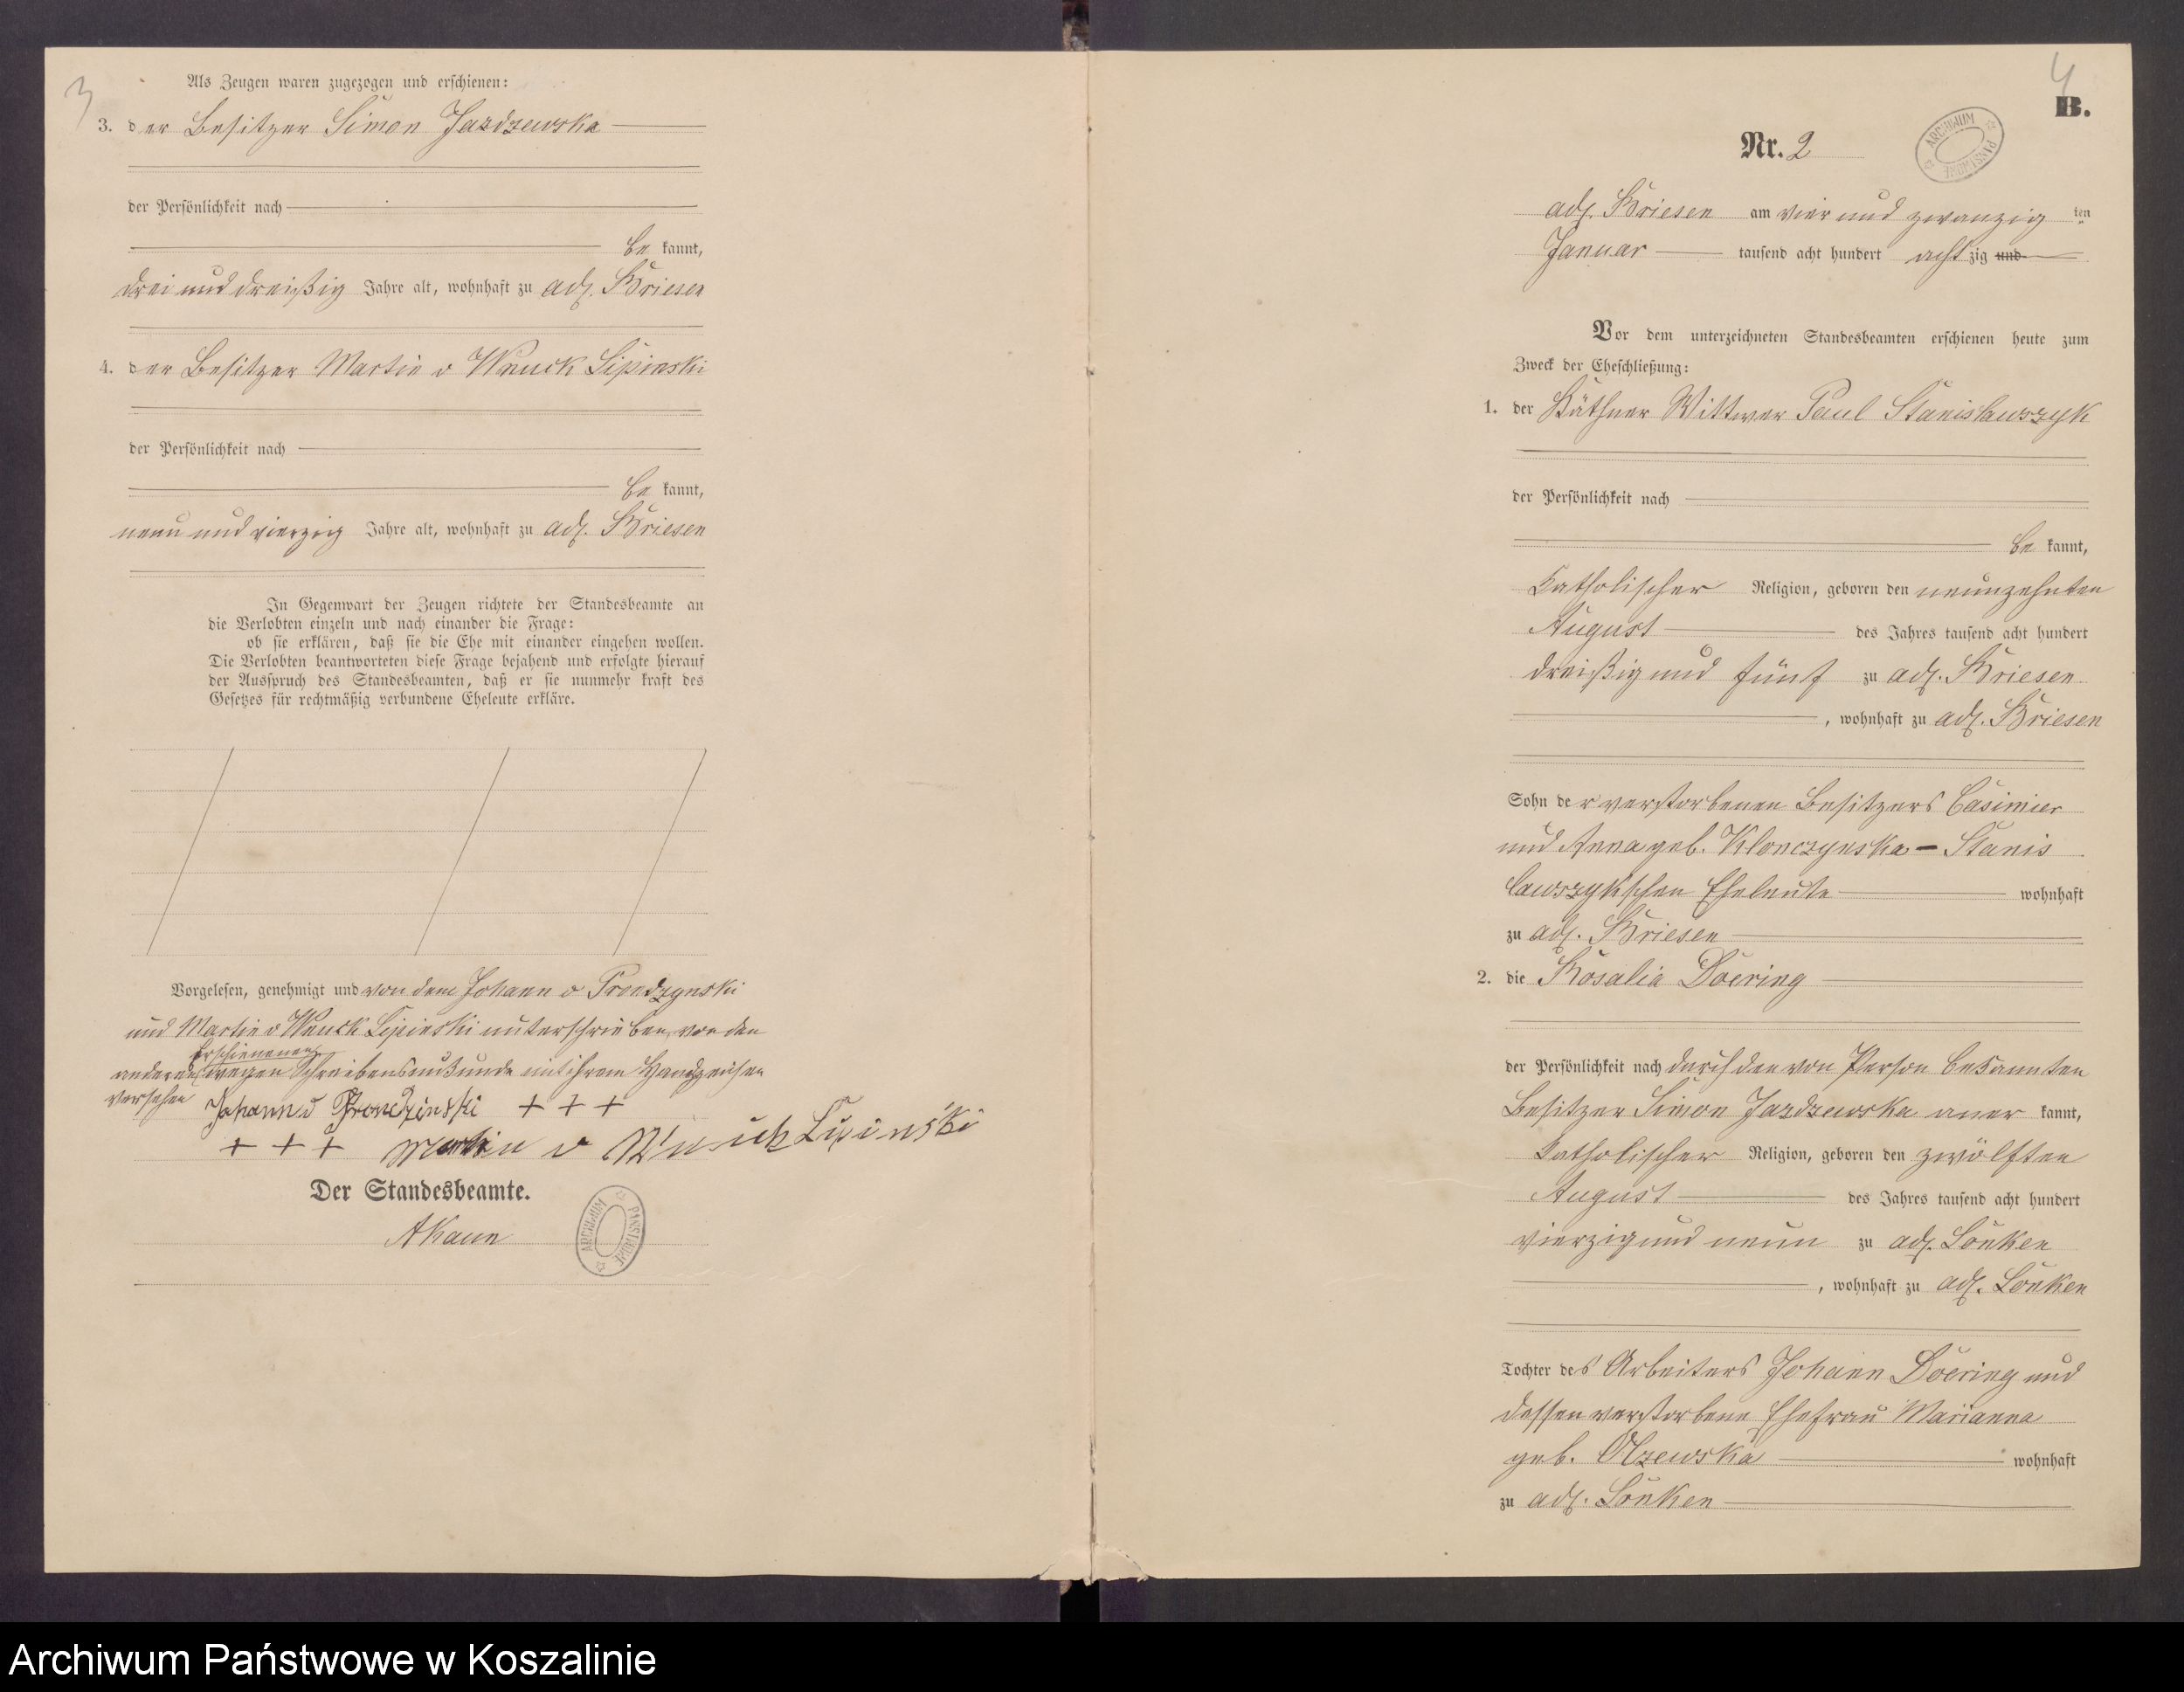 3
Als Zeugen waren zugezogen und erschienen:
3. der Besitzer Simon Jazdzewska
der Persönlichkeit nach
be kannt,
drei und dreißig Jahre alt, wohnhaft zu adl. Briesen
4. der Besitzer Martin v Wnuck Lipinski
der Persönlichkeit nach
be kannt,
neun und vierzig Jahre alt, wohnhaft zu adl. Briesen
In Gegenwart der Zeugen richtete der Standesbeamte an
die Verlobten einzeln und nach einander die Frage:
ob sie erklären, daß sie die Ehe mit einander eingehen wollen.
Die Verlobten beantworteten diese Frage bejahend und erfolgte hierauf
der Ausspruch des Standesbeamten, daß er sie nunmehr kraft des
Gesetzes für rechtmäßig verbundene Eheleute erkläre.
Vorgelesen, genehmigt und von dem Johann v Prondzynski
und Martin v Wnuck Lipinski unterschrieben, von den
Erschienenen
anderen wegen Schreibensunkunde mit ihrem Handzeichen
versehen Johann v Prondzinski + + +
+ + + Martin v Wnuck Lipinski
Der Standesbeamte.
ARCHIWUM PAŃSTWOWE
4
B.
Nr. 2
ARCHIWUM PAŃSTWOWE
adl. Briesen am vier und zwanzig ten
Januar tausend acht hundert acht zig und
Vor dem unterzeichneten Standesbeamten erschienen heute zum
Zweck der Eheschließung:
1. der Käthner Wittwer Paul Stanislawszyk
der Persönlichkeit nach
be kannt,
Katholischer Religion, geboren den neunzehnten
August des Jahres tausend acht hundert
dreißig und fünf zu adl. Briesen
, wohnhaft zu adl. Briesen
Sohn der verstorbenen Besitzers Casimier
und Anna geb. Klonczynska - Stanis
lawszykschen Eheleute wohnhaft
zu adl. Briesen
2. die Rosalia Doering
der Persönlichkeit nach durch den von Person bekannten
Besitzer Simon Jazdzewska aner kannt,
Katholischer Religion, geboren den zwölften
August des Jahres tausend acht hundert
vierzig und neun zu adl. Lonken
, wohnhaft zu adl. Lonken
Tochter des Arbeiters Johann Doering und
dessen verstorbene Ehefrau Marianna
geb. Olzewska wohnhaft
zu adl. Lonken
Archiwum Państwowe w Koszalinie